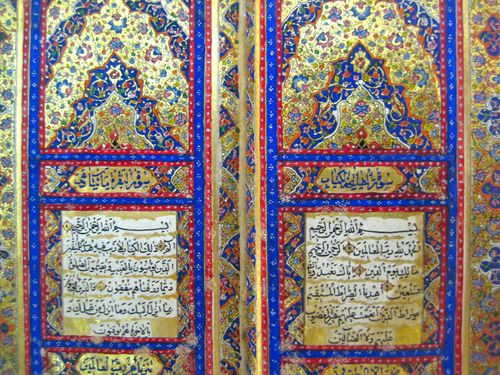 سورة فاتحة الكتاب
بسم الله الرحمن الرحيم
الحمد لله رب العالمين الرحمن الرحيم
مالك يوم الدين اياك نعبد و اياك
نستعين اهدنا الصراط المستقيم
صراط الذين انعمت عليهم غير المغضوب
عليهم ولا الضالين
سورة البقرة
بسم الله الرحمن الرحيم
الم ذلك الكتاب لا ريب فيه هدى للمتقين
الذين يؤمنون بالغيب ويقيمون الصلوة
ومما رزقناهم ينفقون والذين يؤمنون
بما انزل اليك وما انزل من قبلك و
بالاخرة هم يوقنون
تنزيل من رب العالمين